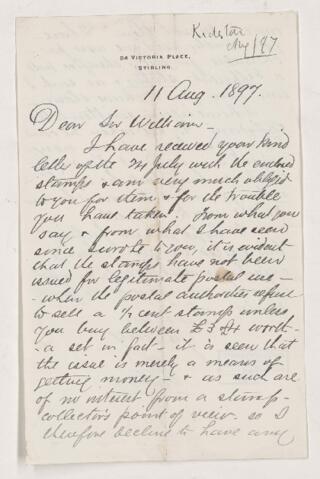 Kidston
Aug /97
24 VICTORIA PLACE,
STIRLING.
11 Aug. 1897.
Dear Sir William –
I have received your kind
letter of the 24 July with the enclosed
stamps & am very much obliged
to you for them & for the trouble
you have taken. From what you
say & from what I have seen
since I wrote to you, it is evident
that the stamps have not been
issued for legitimate postal use –
– when the postal authorities refuse
to sell a ½ cent stamp unless
you buy between £3 £4 worth –
– a set in fact – it is seen that
the issue is merely a means of
getting money – & as such are
of no interest from a stamp-
collector's point of view. so I
therefore decline to have any